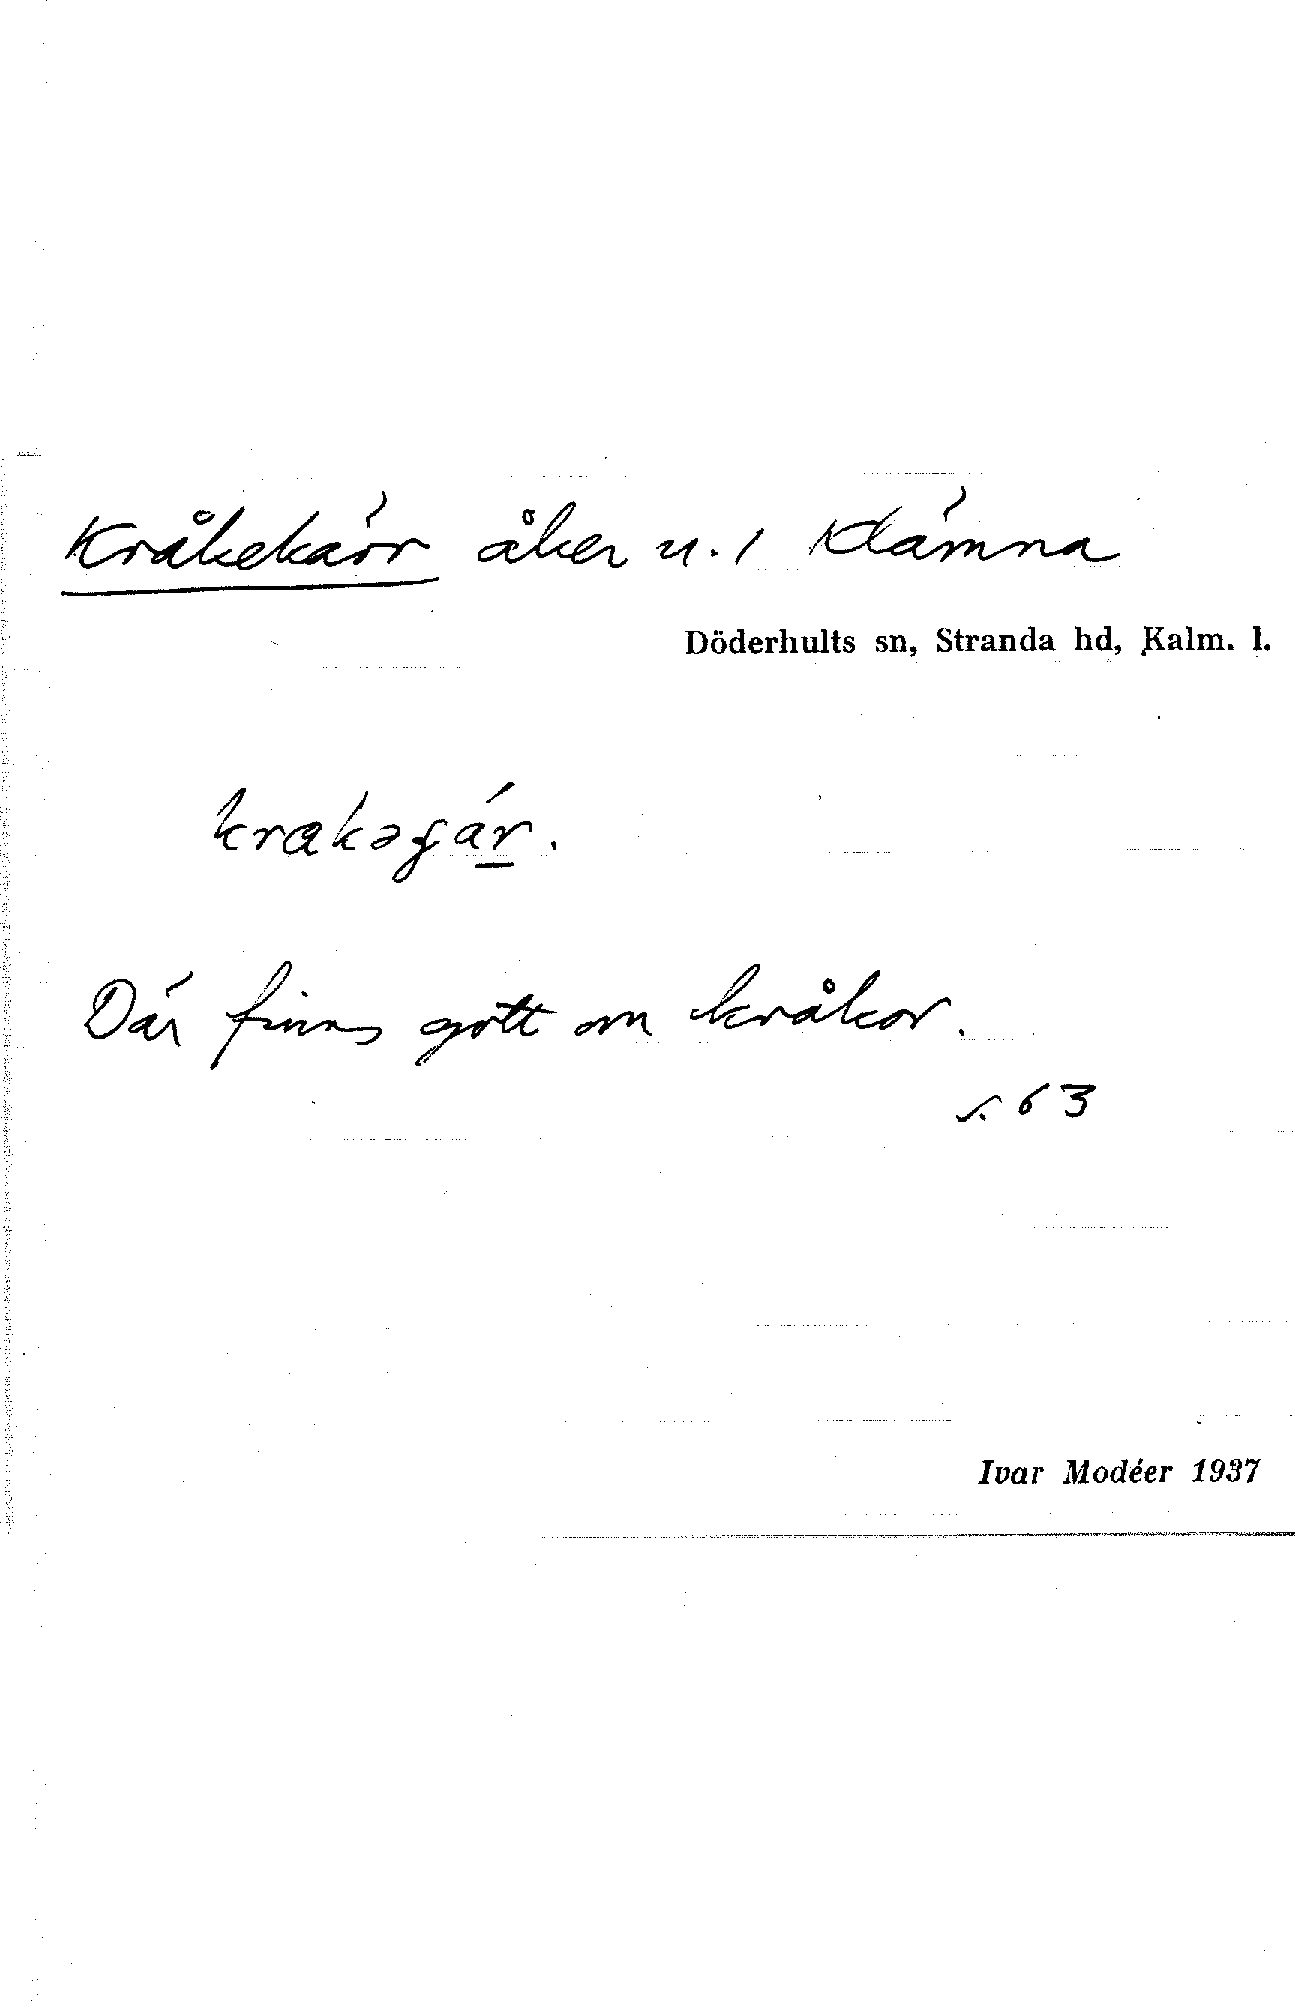 Kråkekärr åker u. / Klämna
Döderhults sn, Stranda hd, Kalm. l.
Där finns gott om kråkor.
s. 63
Ivar Modéer 1937